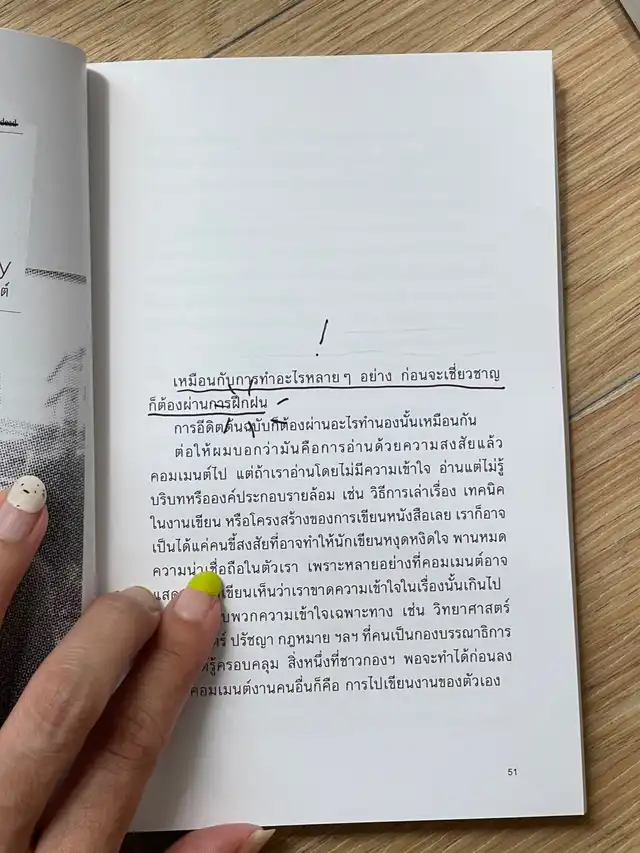 เหมือนกับการทำอะไรหลาย ๆ อย่าง ก่อนจะเชี่ยวชาญ
ก็ต้องผ่านการฝึกฝน
การอีดิตต้นฉบับก็ต้องผ่านอะไรทำนองนั้นเหมือนกัน
ต่อให้ผมบอกว่ามันคือการอ่านด้วยความสงสัยแล้ว
คอมเมนต์ไป แต่ถ้าเราอ่านโดยไม่มีความเข้าใจ อ่านแต่ไม่รู้
บริบทหรือองค์ประกอบรายล้อม เช่น วิธีการเล่าเรื่อง เทคนิค
ในงานเขียน หรือโครงสร้างของการเขียนหนังสือเลย เราก็อาจ
เป็นได้แค่คนขี้สงสัยที่อาจทำให้นักเขียนหงุดหงิดใจ พานหมด
ความน่าเชื่อถือในตัวเรา เพราะหลายอย่างที่คอมเมนต์อาจ
เขียนเห็นว่าเราขาดความเข้าใจในเรื่องนั้นเกินไป
พวกความเข้าใจเฉพาะทาง เช่น วิทยาศาสตร์
ปรัชญา กฎหมาย ฯลฯ ที่คนเป็นกองบรรณาธิการ
รู้ครอบคลุม สิ่งหนึ่งที่ชาวกองฯ พอจะทำได้ก่อนลง
คอมเมนต์งานคนอื่นก็คือ การไปเขียนงานของตัวเอง
51